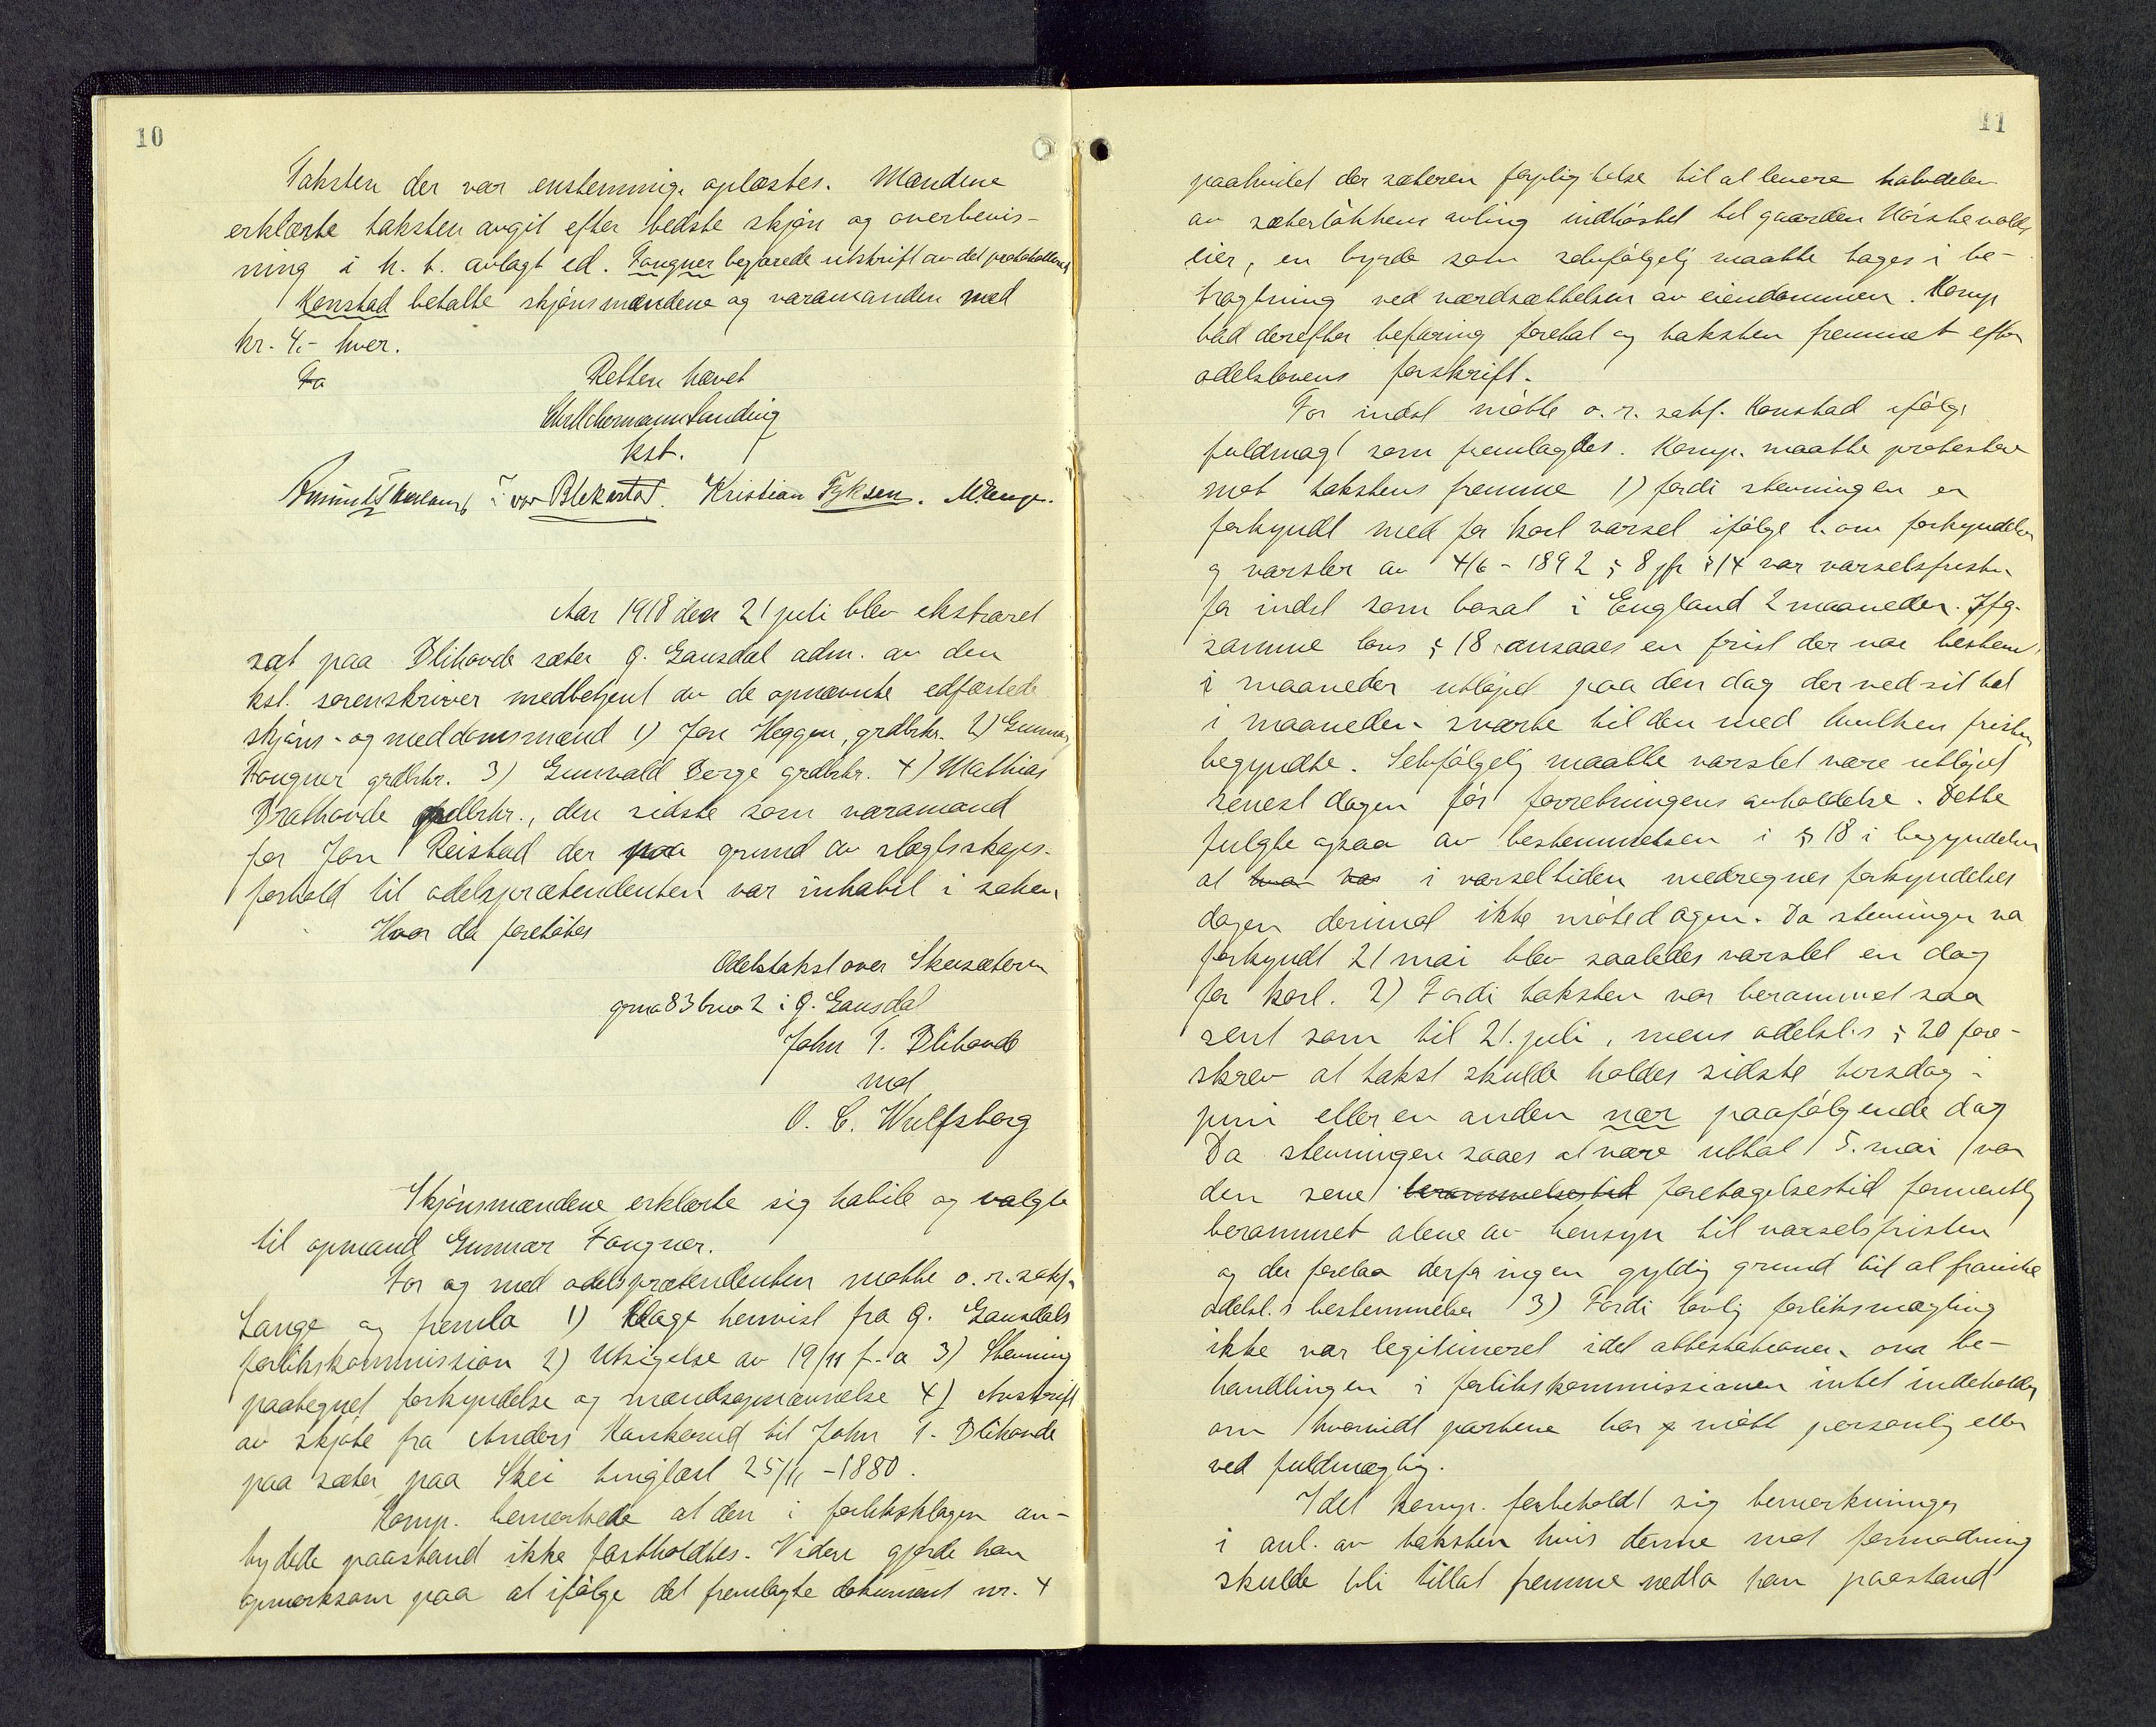 10
Taksten der var enstemmig oplæstes. Mændene
erklærte taksten avgit efter bedste skjøn og overbevis-
ning i h. t. avlagt ed. Fougner begjærede utskrift av det protokollerte
Konstad betalte skjønsmændene og varamanden med
kr. 4.- hver.
Fo
Retten hævet
kst.
Kristian Fyksen.
Aar 1918 den 21 juli blev ekstraret
sat paa Blihovde sæter Ø. Gausdal adm. av den
kst. sorenskriver medbetjent av de opnævnte edfæstede
skjøns- og meddomsmænd 1) Jon Heggen, grdbrkr. 2) Gunnar
Fougner grdbrkr. 3) Gunvald Berge grdbrkr. 4) Mathias
Brathovde grdbrkr., den sidste som varamand
for Jon Reistad der paa grund av slægtsskaps-
forhold til odelsprætendenten var inhabil i saken
Hvor da foretokes
Odelstakst over Skeisæteren
gno 83 bno 2 i Ø. Gausdal
John T. Blihovde
mot
O. C. Wulfsberg
Skjønsmændene erklærte sig habile og valgte
til opmand Gunnar Fougner.
For og med odelsprætendenten møtte o. r. sakf.
Lange og fremla 1) Klage henvist fra Ø. Gausdals
forlikskommission 2) Utsigelse av 19/11 f. a 3) Stevning
paategnet forkyndelse og mændsopnævnelse 4) Avskrift
av skjøte fra Anders Kankerud til John T. Blihovde
paa sæter paa Skei tinglæst 25/11 - 1880.
Komp. bemerkede at den i forliksklagen an-
tydede paastand ikke fastholdtes. Videre gjorde han
opmerksom paa at ifølge det fremlagte dokument nr. 4
11
paahvilet der sæteren forpligtelse til at levere halvdelen
av sæterløkkens avling indhøstet til gaarden Kørstevolds
eier, en byrde som selvfølgelig maatte tages i be-
tragtning ved værdsættelsen av eiendommen. Komp
bad derefter befaring foretat og taksten fremmet efter
odelslovens forskrift.
For indst møtte o. r. sakf. Konstad ifølge
fuldmagt som fremlagdes. Komp. maatte protestere
mot takstens fremme 1) fordi stevningen er
forkyndt med for kort varsel ifølge l. om forkyndelse
og varsler av 4/6 - 1892 § 8 jfr § 14 var varselsfristen
for indst som bosat i England 2 maaneder. Ifg.
samme lovs § 18 ansaaes en frist der var bestemt
i maaneder utløpet paa den dag der ved sit tal
i maaneden svarte til den med hvilken fristen
begyndte. Selvfølgelig maatte varslet være utløpet
senest dagen før forretningens avholdelse. Dette
fulgte ogsaa av bestemmelsen i § 18 i begyndelsen
at hvor var i varseltiden medregnes forkyndelses
dagen derimot ikke møtedagen. Da stevningen va
forkyndt 21 mai blev saaledes varslet en dag
for kort. 2) Fordi taksten var berammet saa
sent som til 21. juli, mens odelsl.s § 20 fore-
skrev at takst skulde holdes sidste torsdag i
juni eller en anden nær paafølgende dag
Da stevningen saaes at være uttat 5. mai var
den sene berammelsestid foretagelsestid formentlig
berammet alene av hensyn til varselsfristen
og der forelaa derfor ingen gyldig grund til at fravike
odelsl.s bestemmelse 3) Fordi lovlig forliksmægling
ikke var legitimeret idet attestationen om be-
handlingen i forlikskommissionen intet indeholder
om hvorvidt parterne har møtt personlig eller
ved fuldmægtig.
Idet komp. forbeholdt sig bemerkninger
i anl. av taksten hvis denne mot formodning
skulde bli tillat fremme nedla han paastand